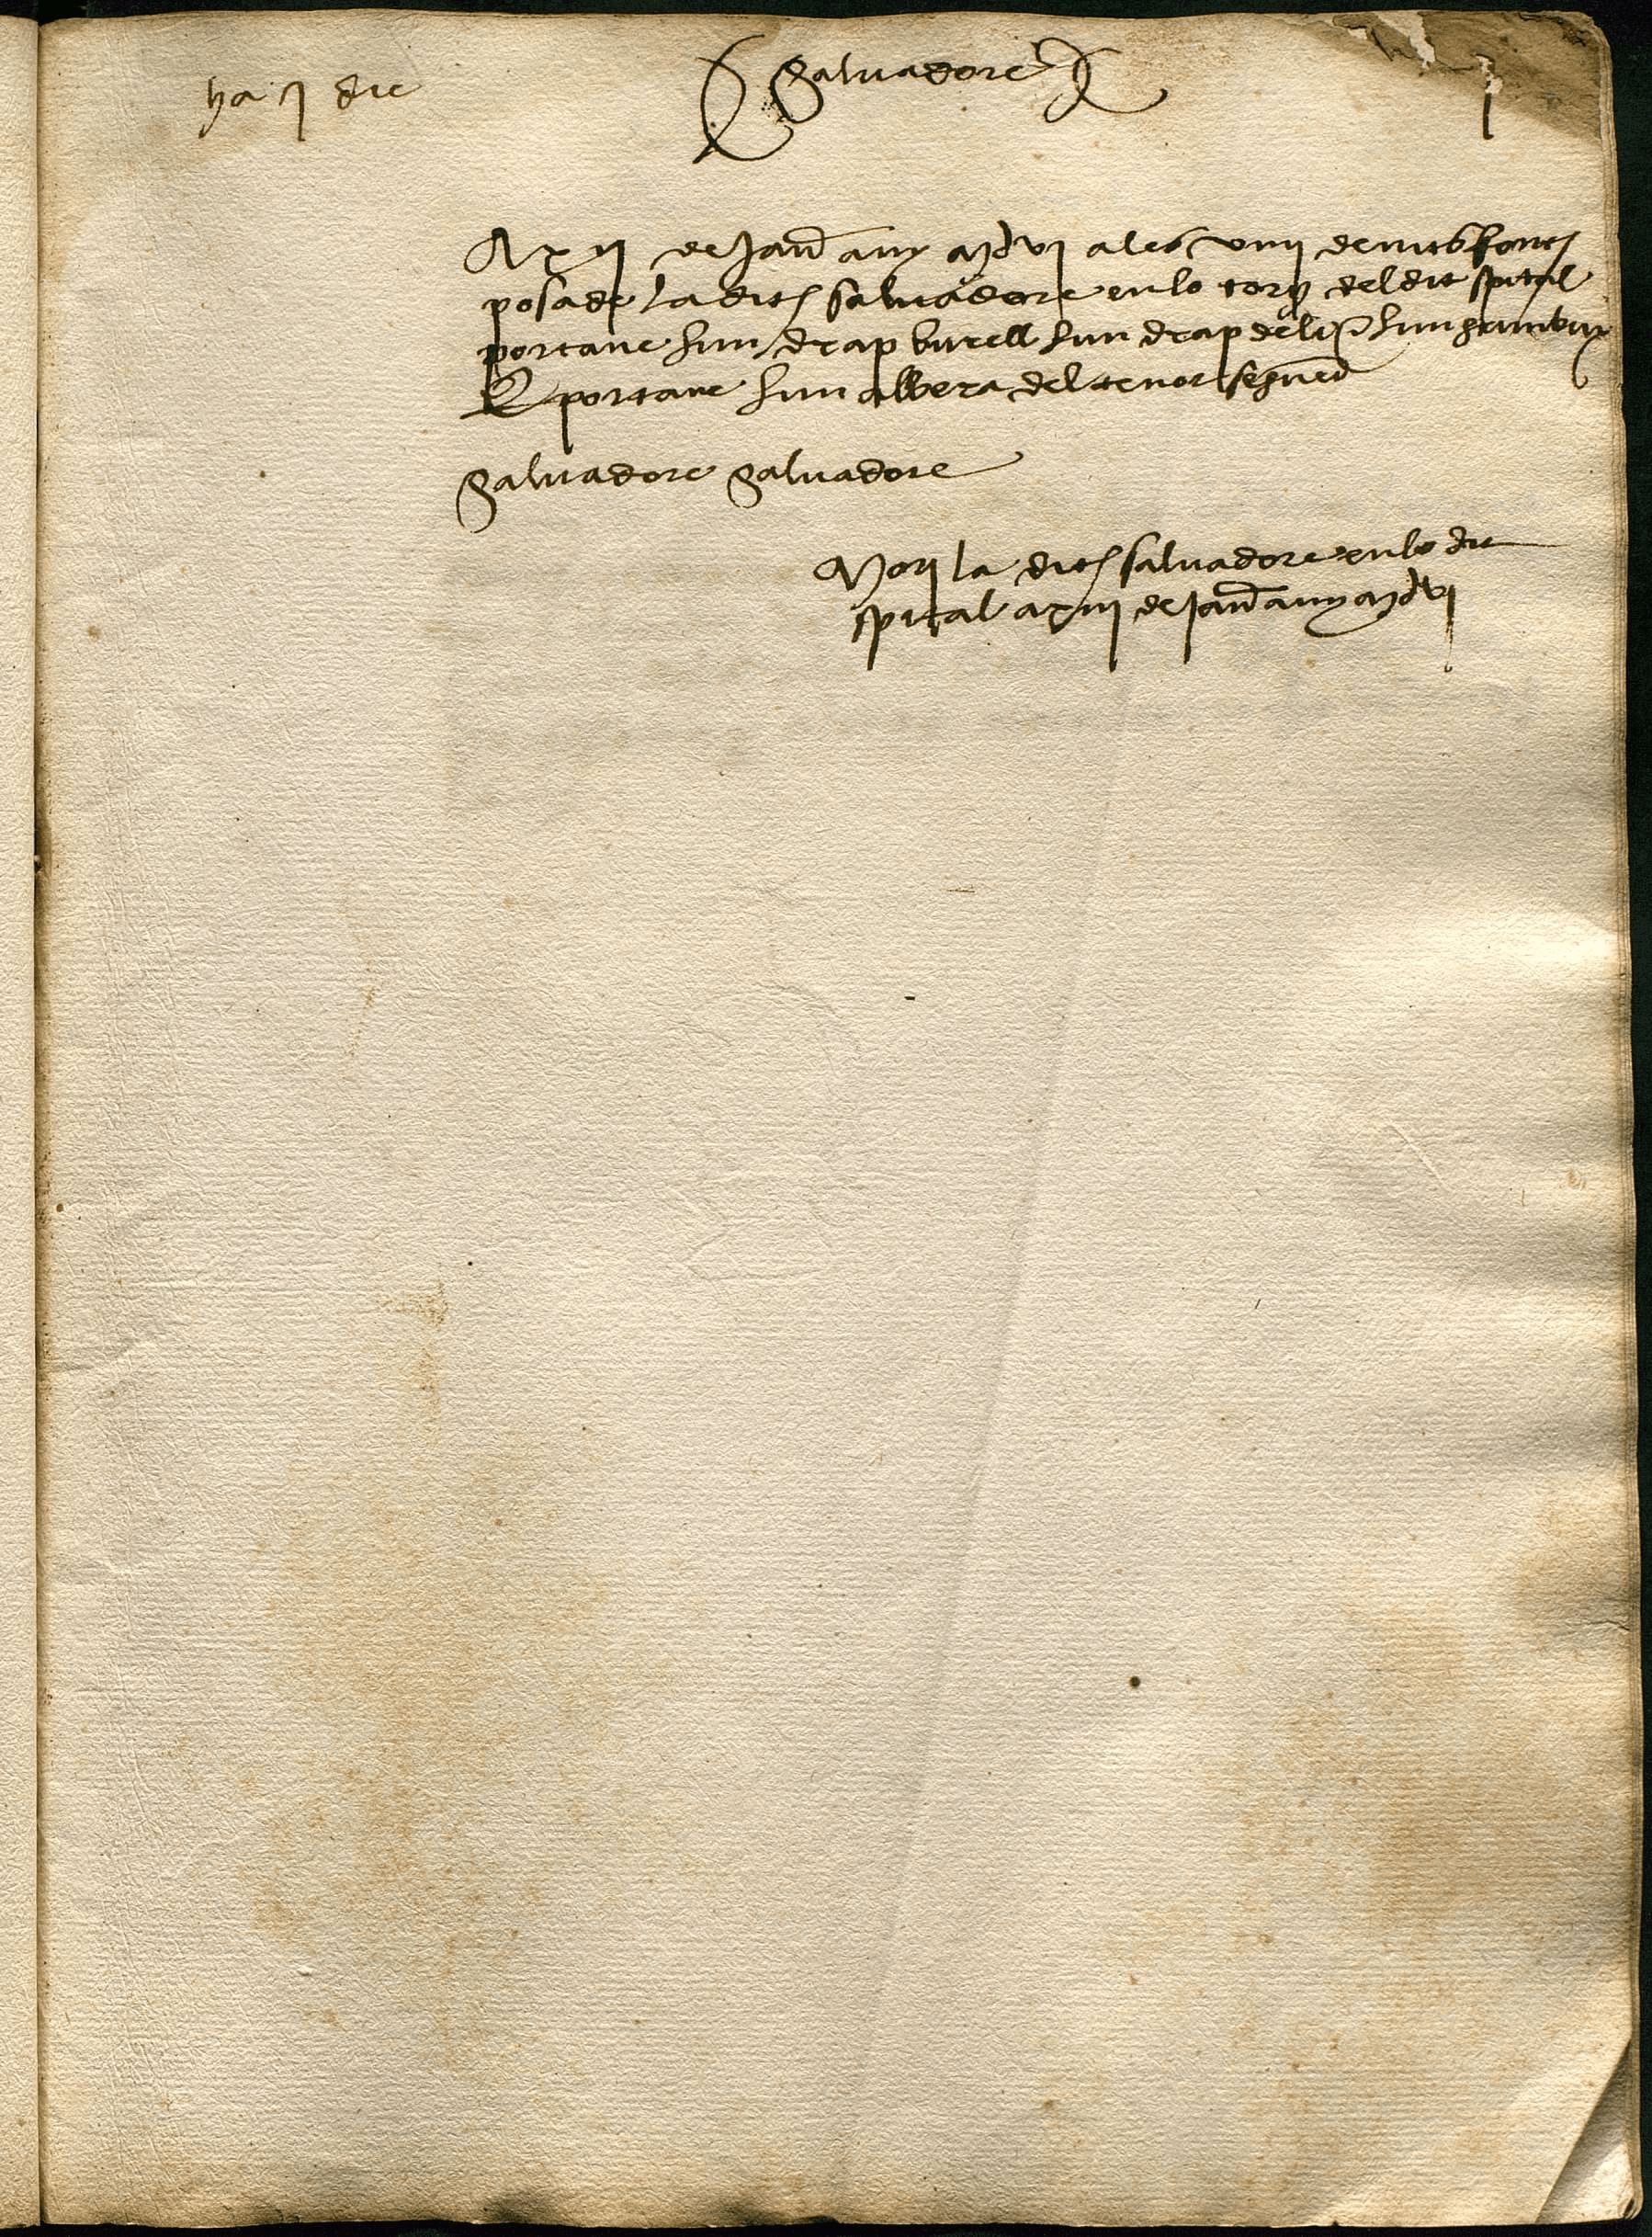 ha j die
Salvadore
j
A xij de Janer any mdvj a les viiij de nit fonch
posade la dita salvadore en lo torn del dit spital
portave hun drap burell hun drap de li hun
E portave hun albera del tenor seguent
Salvadore Salvadore
Mori la dita salvadore en lo dit
spital a xiij de Janer any mdvj